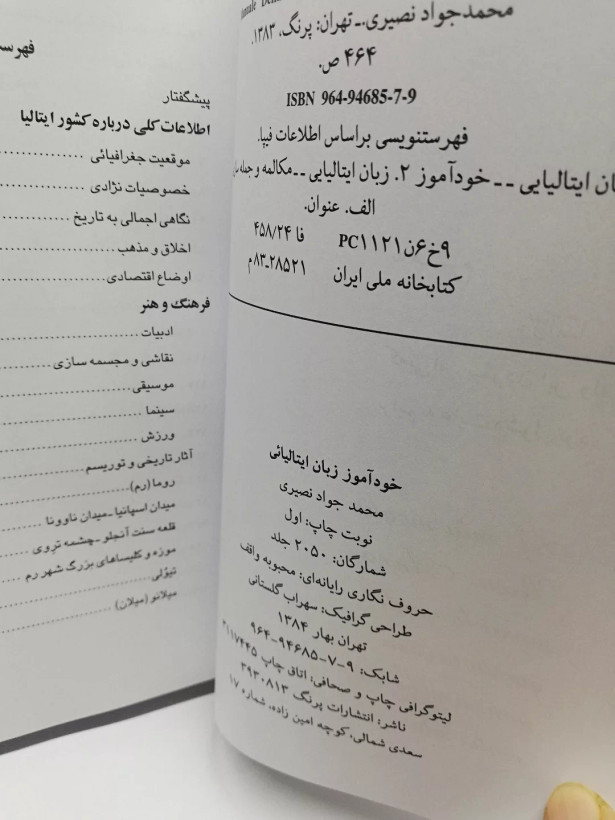 محمدجواد نصیری.ـ تهران: پرنگ، ۱۳۸۳.
۴۶۴ ص.
ISBN 964-94685-7-9
فهرستنویسی براساس اطلاعات فیپا.
ایتالیایی ــ خودآموز ۲. زبان ایتالیایی ــ مکالمه و جمله
الف. عنوان.
۹خ۶ن/PC۱۱۲۱ فا ۴۵۸/۲۴
کتابخانه ملی ایران ۲۸۵۲۱ـ۸۳م
خودآموز زبان ایتالیائی
محمد جواد نصیری
نوبت چاپ: اول
شمارگان: ۲۰۵۰ جلد
حروف نگاری رایانه‌ای: محبوبه واقف
طراحی گرافیک: سهراب گلستانی
تهران بهار ۱۳۸۴
شابک: ۹-۷-۹۴۶۸۵-۹۶۴
لیتوگرافی چاپ و صحافی: اتاق چاپ ۳۱۱۷۴۴۵
ناشر: انتشارات پرنگ ۳۹۳۰۸۱۳
سعدی شمالی، کوچه امین زاده، شماره ۱۷
پیشگفتار
اطلاعات کلی درباره کشور ایتالیا
موقعیت جغرافیائی
خصوصیات نژادی
نگاهی اجمالی به تاریخ
اخلاق و مذهب
اوضاع اقتصادی
فرهنگ و هنر
ادبیات
نقاشی و مجسمه سازی
موسیقی
سینما
ورزش
آثار تاریخی و توریسم
روما (رم)
میدان اسپانیا ـ میدان ناوونا
قلعه سنت آنجلو ـ چشمه تروی
موزه و کلیساهای بزرگ شهر رم
تیوُلی
میلانو (میلان)